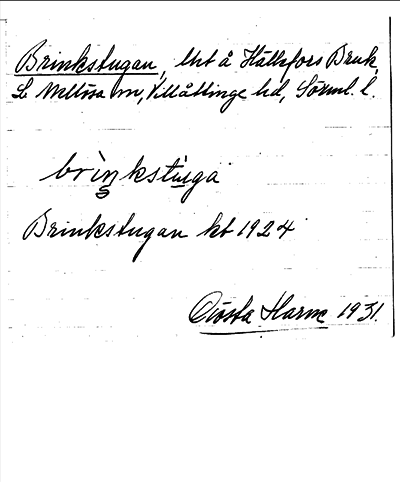 Brinkstugan, lht å Hällefors Bruk,
L. Mellösa sn, Villåttinge hd, Sörml. l.
brìŋkstu̡ga
Brinkstugan kb 1924
Gösta Harne 1931.